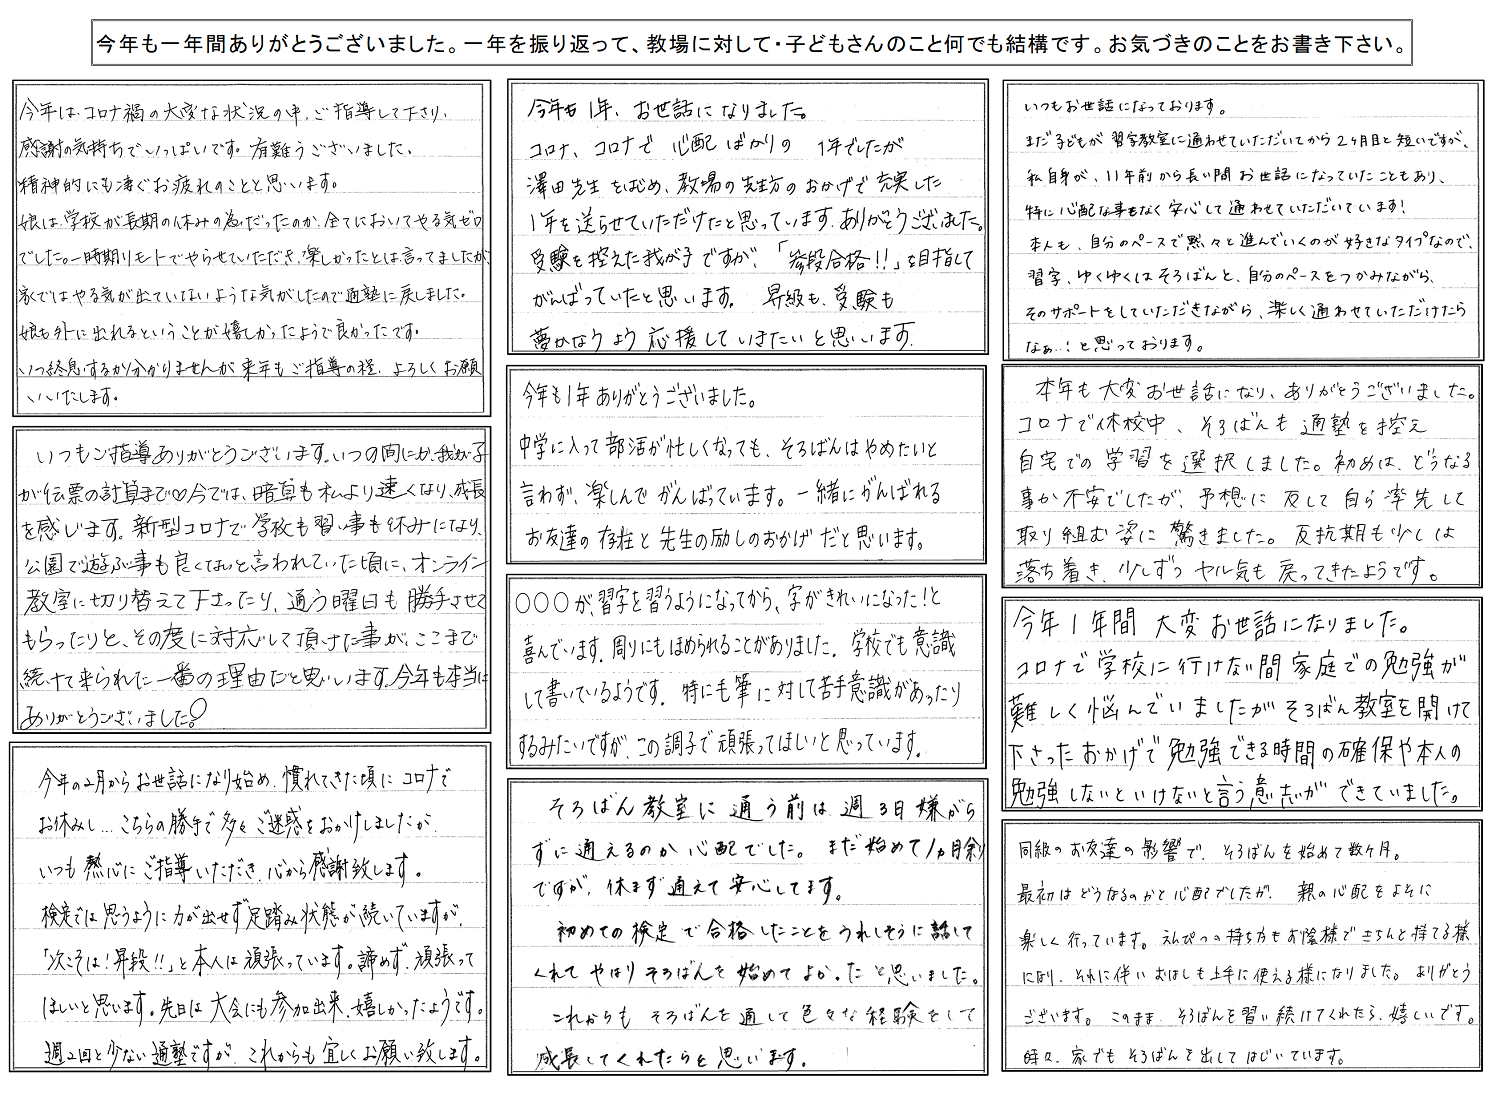 今年も一年間ありがとうございました。一年を振り返って、教場に対して・子どもさんのこと何でも結構です。お気づきのことをお書き下さい。
今年は、コロナ禍の大変な状況の中、ご指導して下さり、
感謝の気持ちでいっぱいです。有難うございました。
精神的にも凄くお疲れのことと思います。
娘は、学校が長期の休みの為だったのか、全てにおいてやる気ゼロ
でした。一時期リモトでやらせていただき、楽しかったとは言ってましたが、
家ではやる気が出ていないような気がしたので通塾に戻しました。
娘も外に出れるということが嬉しかったようで良かったです。
いつ終息するか分かりませんが来年もご指導の程、よろしくお願
いいたします。
いつもご指導ありがとうございます。いつの間にか、我が子
が伝票の計算まで♡今では、暗算も私より速くなり、成長
を感じます。新型コロナで学校も習い事も休みになり、
公園で遊ぶ事も良くないと言われていた頃に、オンライン
教室に切り替えて下さったり、通う曜日も勝手させて
もらったりと、その度に対応して頂けた事が、ここまで
続けて来られた一番の理由だと思います。今年も本当に
ありがとうございました♡
今年の2月からお世話になり始め、慣れてきた頃にコロナで
お休みし…こちらの勝手で多々ご迷惑をおかけしましたが、
いつも熱心にご指導いただき、心から感謝致します。
検定では思うように力が出せず足踏み状態が続いていますが、
「次こそは!昇段!!」と本人は頑張っています。諦めず、頑張って
ほしいと思います。先日は大会にも参加出来、嬉しかったようです。
週2回と少ない通塾ですが、これからも宜しくお願い致します。
今年も1年、お世話になりました。
コロナ、コロナで心配ばかりの1年でしたが
澤田先生をはじめ、教場の先生方のおかげで充実した
1年を送らせていただけたと思っています。ありがとうございました。
受験を控えた我が子ですが、「参段合格!!」を目指して
がんばっていたと思います。昇級も、受験も
夢かなうよう応援していきたいと思います。
今年も1年ありがとうございました。
中学に入って部活が忙しくなっても、そろばんはやめたいと
言わず、楽しんでがんばっています。一緒にがんばれる
お友達の存在と先生の励しのおかげだと思います。
○○○が、習字を習うようになってから、字がきれいになった!と
喜んでいます。周りにもほめられることがありました。学校でも意識
して書いているようです。特に毛筆に対して苦手意識があったり
するみたいですが、この調子で頑張ってほしいと思っています。
そろばん教室に通う前は週3日嫌がら
ずに通えるのか心配でした。まだ始めて1ヵ月余り
ですが、休まず通えて安心してます。
初めての検定で合格したことをうれしそうに話して
くれてやはりそろばんを始めてよかったと思いました。
これからもそろばんを通して色々な経験をして
成長してくれたらと思います。
いつもお世話になっております。
まだ子どもが習字教室に通わせていただいてから2ヶ月目と短いですが、
私自身が、11年前から長い間お世話になっていたこともあり、
特に心配な事もなく安心して通わせていただいています!
本人も、自分のペースで黙々と進んでいくのが好きなタイプなので、
習字、ゆくゆくはそろばんと、自分のペースをつかみながら、
そのサポートをしていただきながら、楽しく通わせていただけたら
なぁ…!と思っております。
本年も大変お世話になり、ありがとうございました。
コロナで休校中、そろばんも通塾を控え
自宅での学習を選択しました。初めは、どうなる
事か不安でしたが、予想に反して自ら率先して
取り組む姿に驚きました。反抗期も少しは
落ち着き、少しずつヤル気も戻ってきたようです。
今年1年間大変お世話になりました。
コロナで学校に行けない間家庭での勉強が
難しく悩んでいましたがそろばん教室を開けて
下さったおかげで勉強できる時間の確保や本人の
勉強しないといけないと言う意志ができていました。
同級のお友達の影響で、そろばんを始めて数ヶ月。
最初はどうなるのかと心配でしたが、親の心配をよそに
楽しく行っています。えんぴつの持ち方もお陰様できちんと持てる様
になり、それに伴いおはしも上手に使える様になりました。ありがとう
ございます。このまま、そろばんを習い続けてくれたら、嬉しいです。
時々、家でもそろばんを出してはじいています。